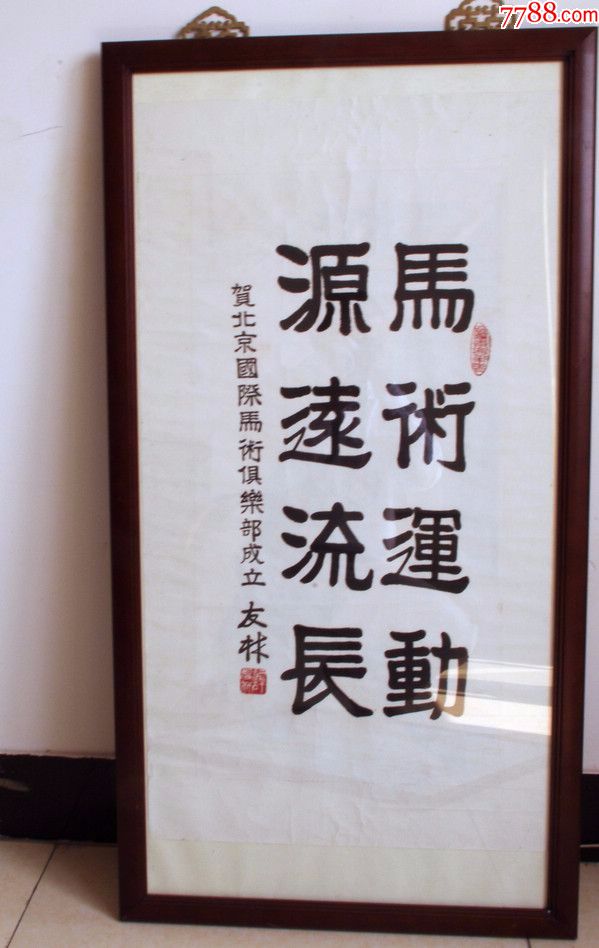 7788.com
馬術運動
源遠流長
賀北京國際馬術俱樂部成立 友林